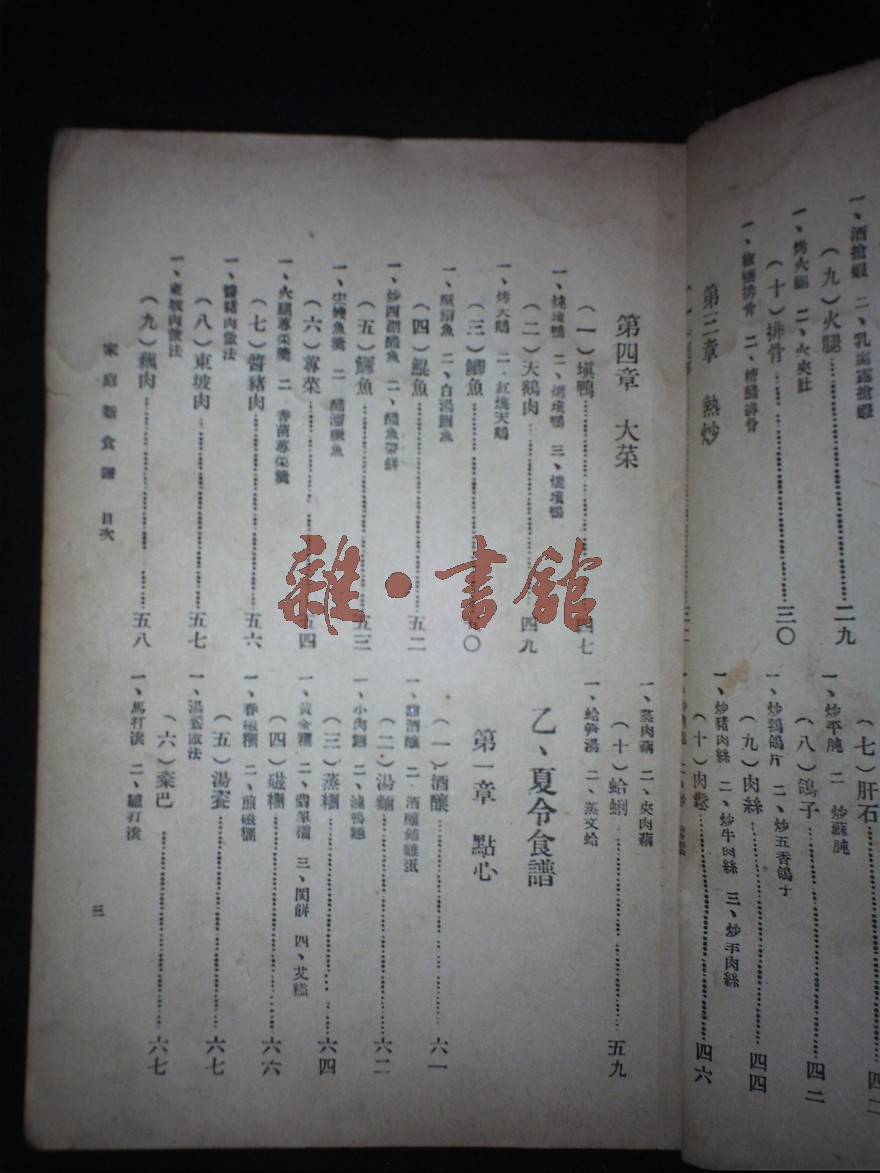 一、酒搶蝦 二、乳腐露搶蝦
(九)火腿……二九
一、烤火腿 二、火夾肚
(十)排骨……三〇
一、椒鹽排骨 二、糖醋排骨
第三章 熱炒
(七)肝石
一、炒平腌 二、炒蘇腌
(八)鴿子……四二
一、炒鵓鴿片 二、炒五香鴿子
(九)肉絲……四四
一、炒豬肉絲 二、炒牛肉絲 三、炒羊肉絲
(十)肉鬆……四六
第四章 大菜
(一)填鴨……四七
一、燒填鴨 二、焖填鴨 三、燒填鴨
(二)天鵝肉……四九
一、烤天鵝 二、紅燒天鵝
(三)鯽魚……五〇
二、白湯鯽魚
(四)鯤魚……五二
一、炒西湖醋魚 二、醋魚帶餅
(五)鱖魚……五三
一、宋嫂魚羹 二、醋溜鱖魚
(六)蓴菜……五四
一、火腿蓴菜羹 二、香菌蓴菜羹
(七)醬豬肉……五六
一、醬豬肉做法
(八)東坡肉……五七
一、東坡肉做法
(九)藕肉……五八
一、蒸肉藕 二、夾肉藕
(十)蛤蜊……五九
一、蛤笋湯 二、蒸文蛤
乙、夏令食譜
第一章 點心
(一)酒釀……六一
一、甜酒釀 二、酒釀鋪雞蛋
(二)湯麵……六二
一、小肉麵 二、滷鴨麵
(三)蒸糰……六四
一、黃金糰 二、翡翠糰 三、閔餅 四、艾糕
(四)磁糰……六六
一、春磁糰 二、煎磁糰
(五)湯麥……六七
一、湯麥做法
(六)棗巴……六七
一、馬打滾 二、驢打滾
家庭新食譜 目次
三
雜·書館